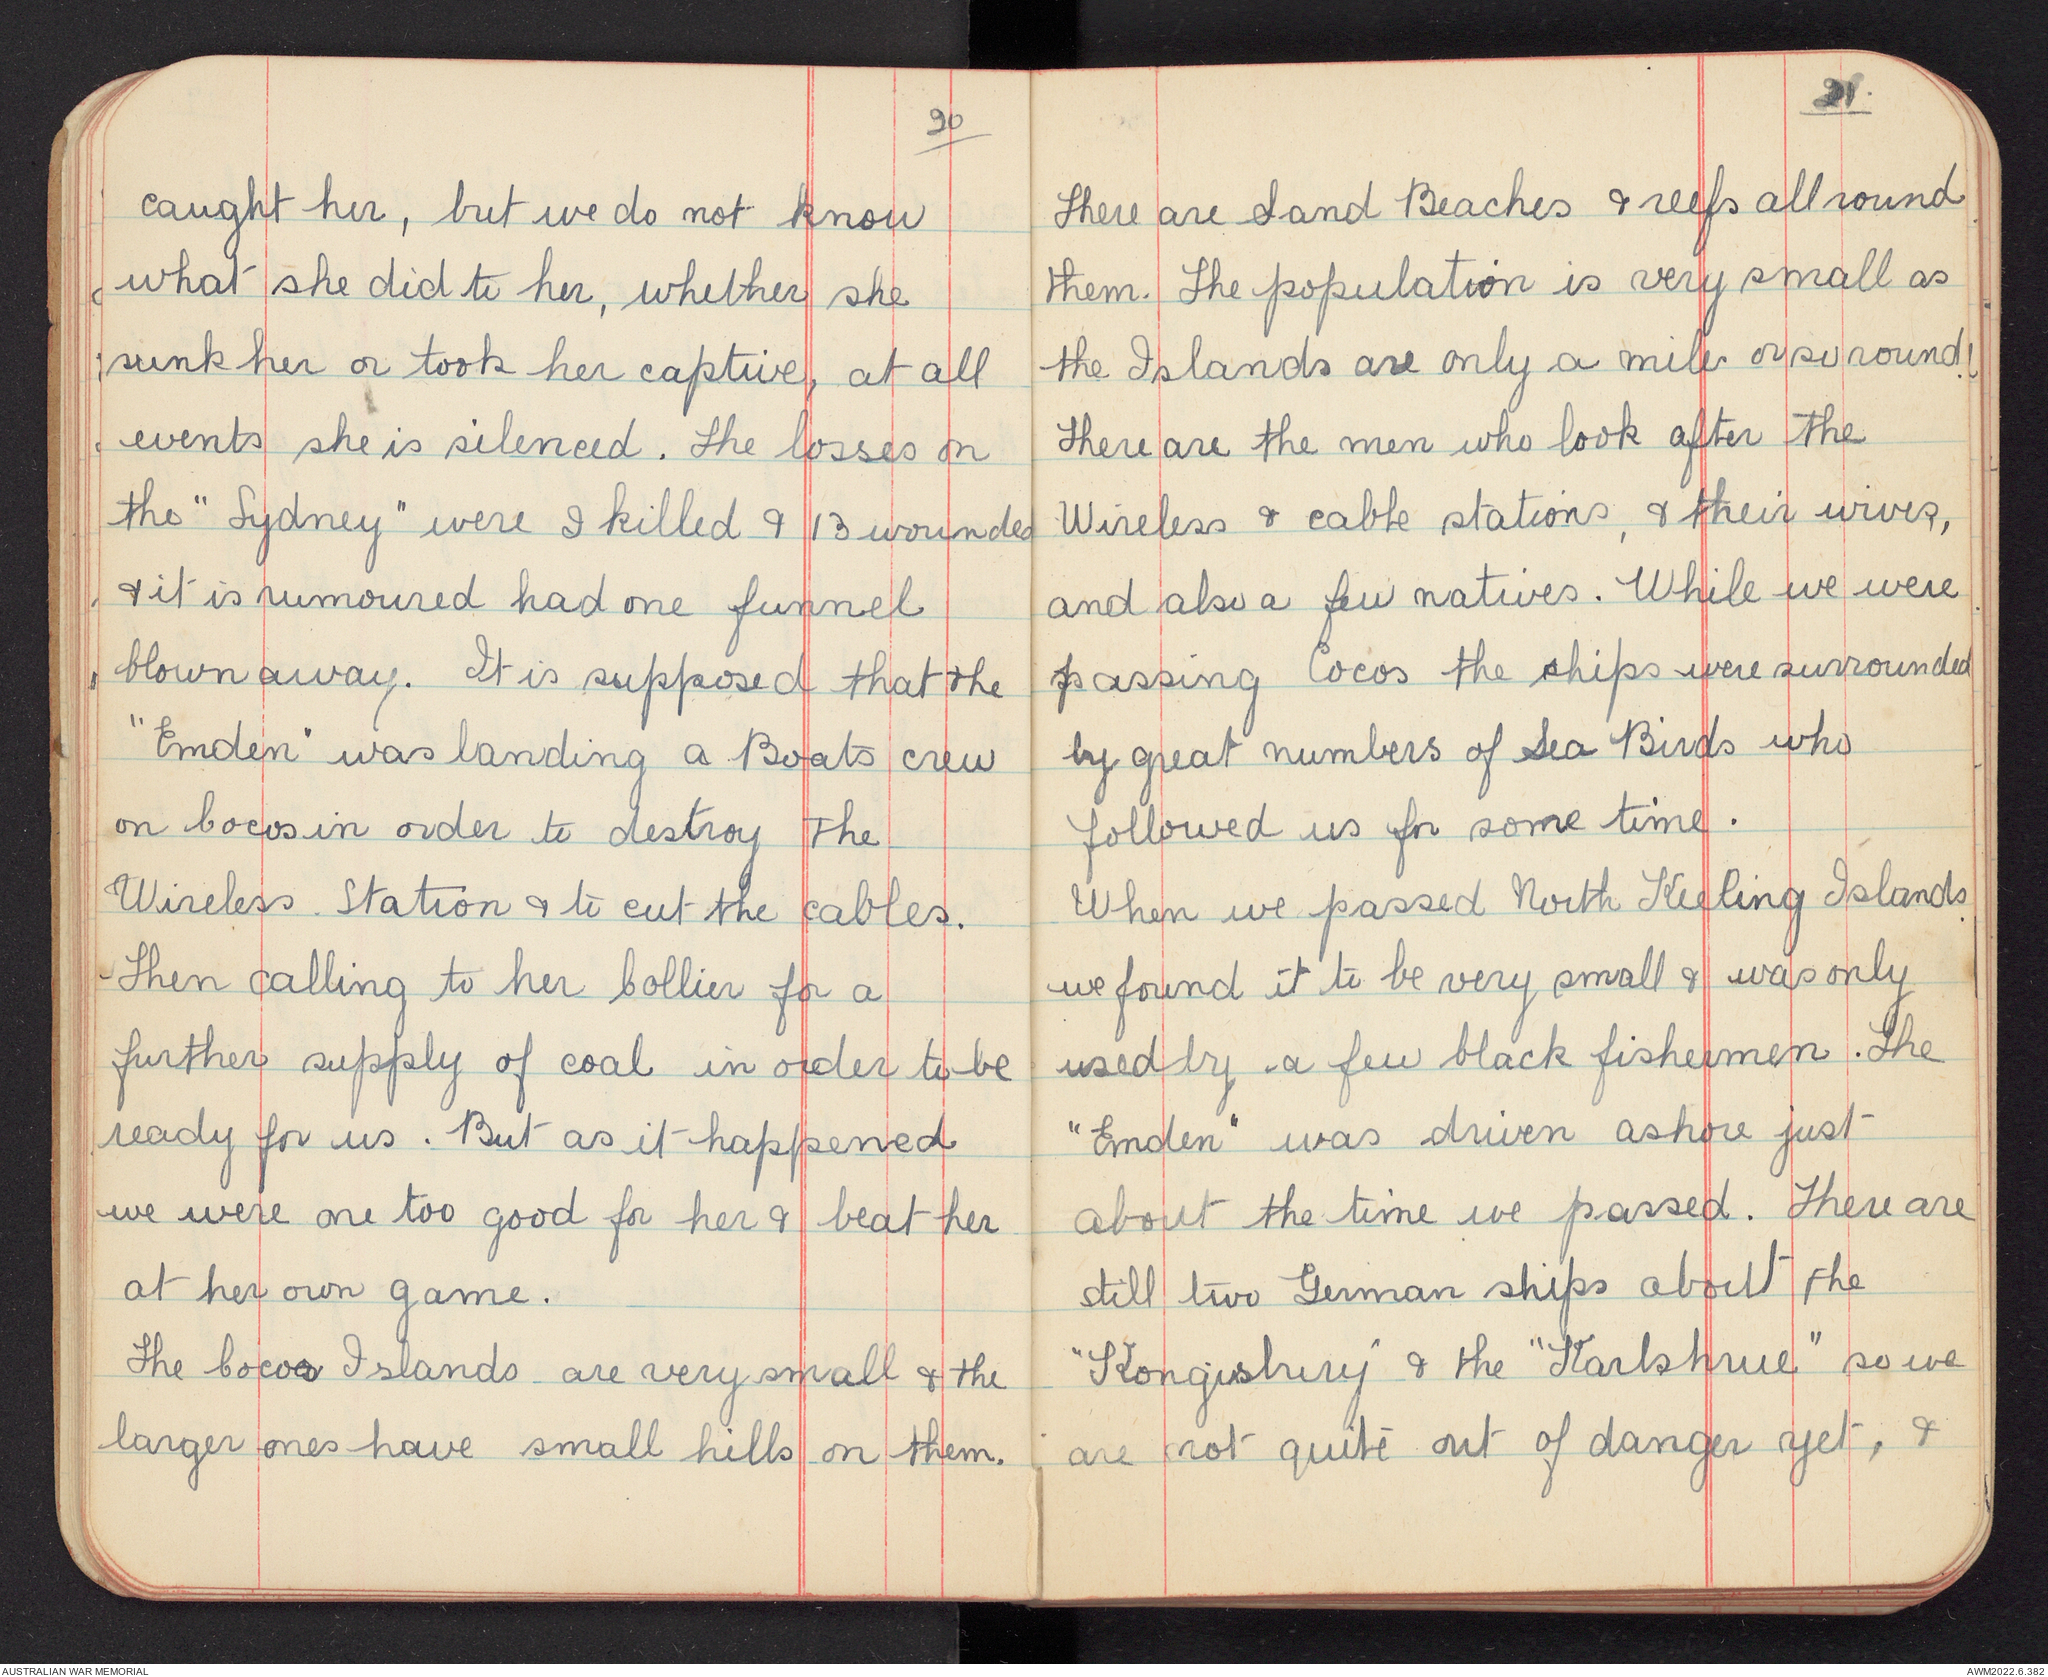 20
caught her, but we do not know
what she did to her, whether she
sunk her or took her captive, at all
events she is silenced. The losses on
the "Sydney" were I killed & 13 wounded
& it is rumoured had one funnel
blown away. It is supposed that the
"Emden" was landing a Boats crew
on Cocos in order to destroy the
Wireless Station & to cut the cables.
Then calling to her Collier for a
further supply of coal in order to be
ready for us. But as it happened
we were one too good for her & beat her
at her own game.
The Cocos Islands are very small & the
larger ones have small hills on them.
21.
There are Sand Beaches & reefs all round
them. The population is very small as
the Islands are only a mile or so round!
There are the men who look after the
Wireless & cable stations, & their wives,
and also a few natives. While we were
passing Cocos the ships were surrounded
by great numbers of Sea Birds who
followed us for some time.
When we passed North Keeling Islands
we found it to be very small & was only
used by a few black fishermen. The
"Emden" was driven ashore just
about the time we passed. There are
still two German ships about the
"Kongisbury" & the "Karlshrue" so we
are not quite out of danger yet, &
AUSTRALIAN WAR MEMORIAL
AWM2022.6.382